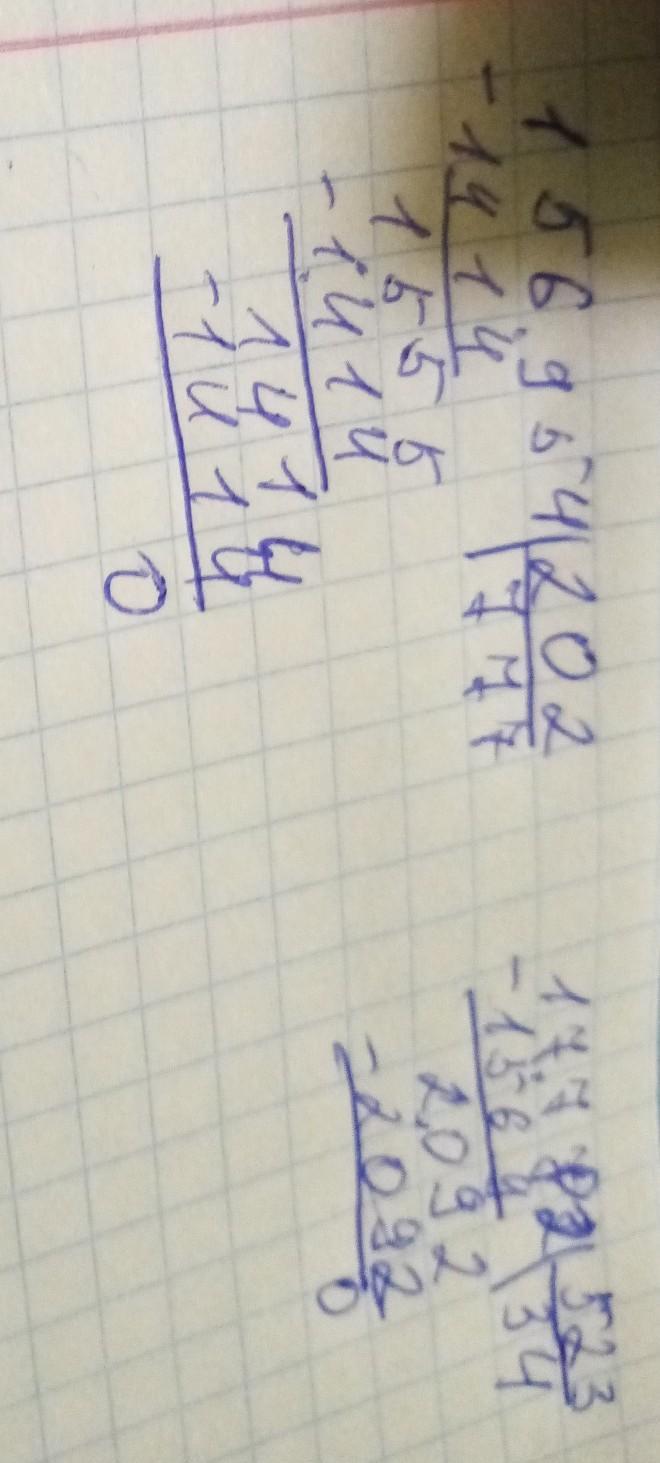 156954 202
-1414 777
1555
-1414
1414
-1414
0
17782 523
-1569 34
2092
-2092
0